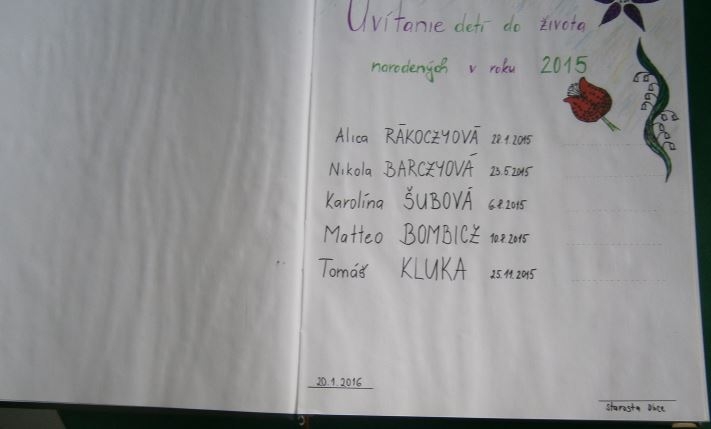 Uvítanie detí do života
narodených v roku 2015
Alica RÁKOCZYOVÁ 22.1.2015
Nikola BARCZYOVÁ 23.5.2015
Karolína ŠUBOVÁ 6.8.2015
Matteo BOMBICZ 10.8.2015
Tomáš KLUKA 25.11.2015
20.1.2016
Starosta Obce